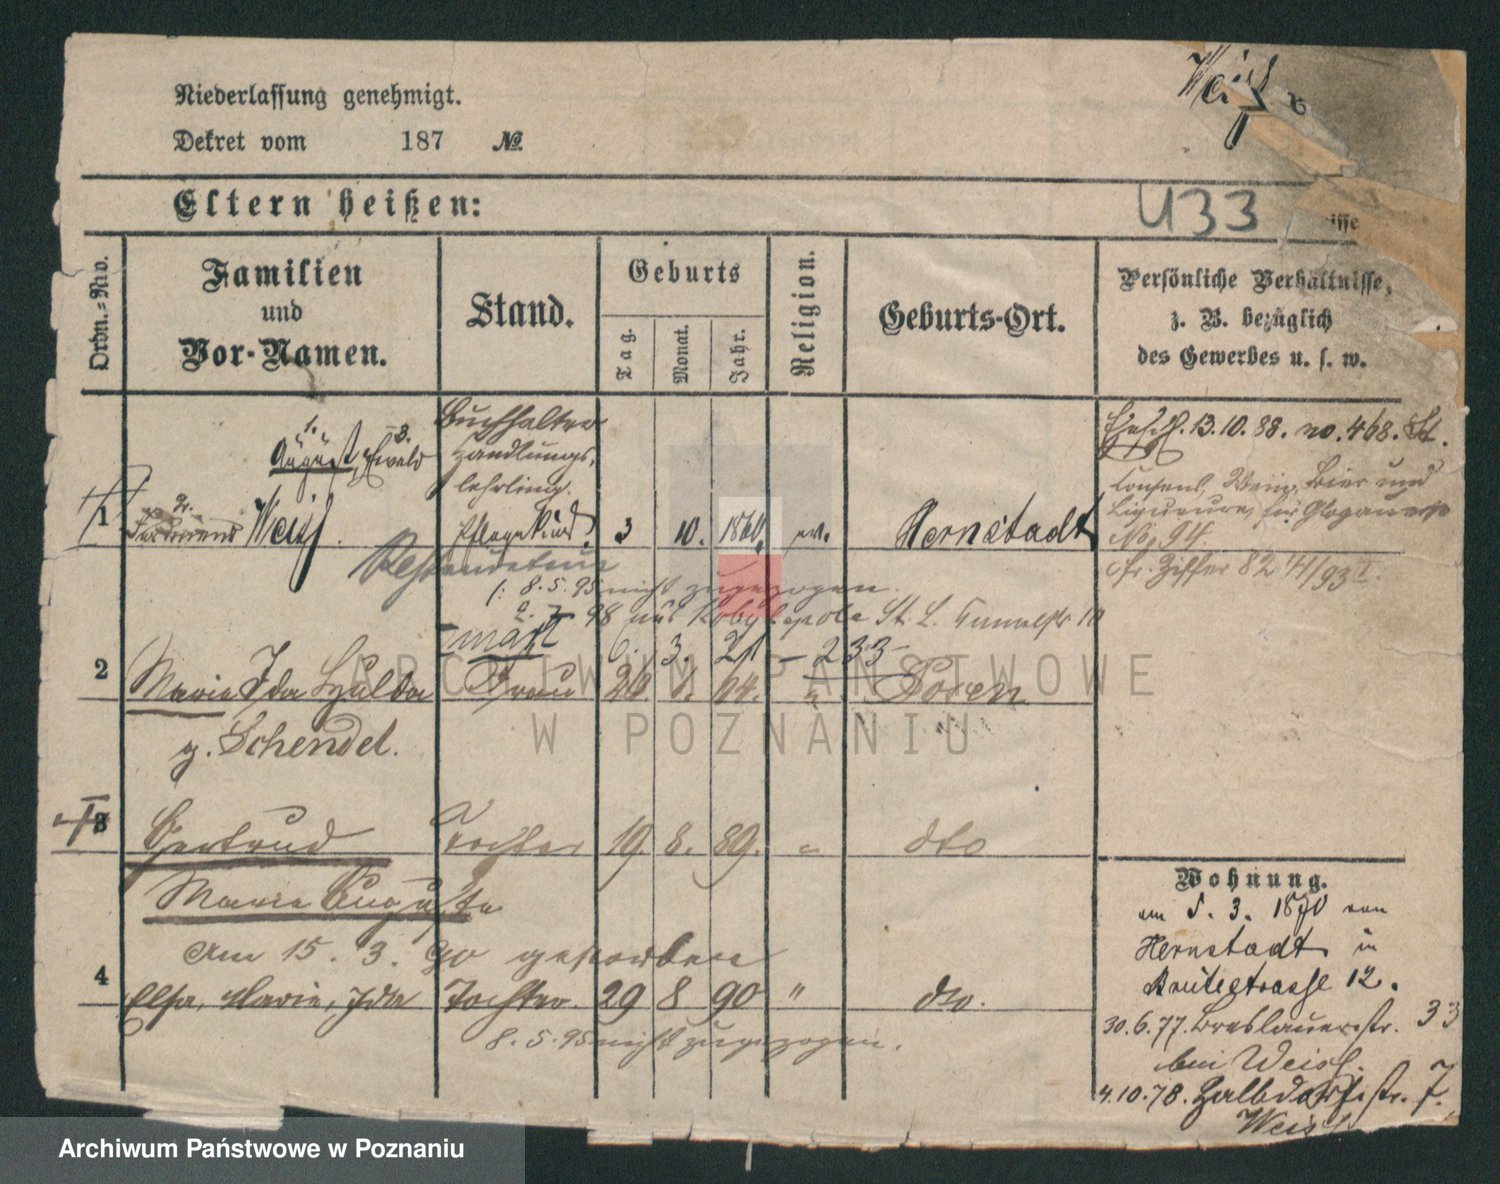 Weiß
Niederlassung genehmigt.
Dekret vom 187 No.
Eltern heißen:
433
Ordn.-Nro.
Familien
und
Vor-Namen.
Stand.
Geburts
Tag.
Monat.
Jahr.
Religion.
Geburts-Ort.
Persönliche Verhältnisse,
z. B. bezüglich
des Gewerbes u. s. w.
1. 3.
August, Ewald
Buchhalter
Handlungs-
lehrling.
Ehesch. 13.10.88. no. 468. St.
Consens, Wein, Bier und
Liqueure, für
No. 94.
cfr. Ziffer 82
1 2. Ferdinand Weiß. Pflegekind. 3 10. 1860. ev. Hernstadt
Restaurateur
1: 8.5.95 nicht zugezogen.
2. 7. 98 aus Kobylepole St. L.
2 Marie Ida Hulda Frau 26 64. " Posen
g. Schendel.
233
3 Gertrud Tochter 19. 8. 89. " dto
Marie Auguste
Am 15. 3. 90 gestorben
4 Elsa, Marie, Ida Tochter. 29 8 90 " dto.
8. 5. 95 nicht zugezogen.
Wohnung.
am 5. 3. 1870 von
Hernstadt in
Breitestrasse 12.
30.6.77. Breslauerstr. 33
bei Weiß.
4.10.78. Halbdorfstr. 7.
Weiß
ARCHIWUM PAŃSTWOWE
W POZNANIU
Archiwum Państwowe w Poznaniu